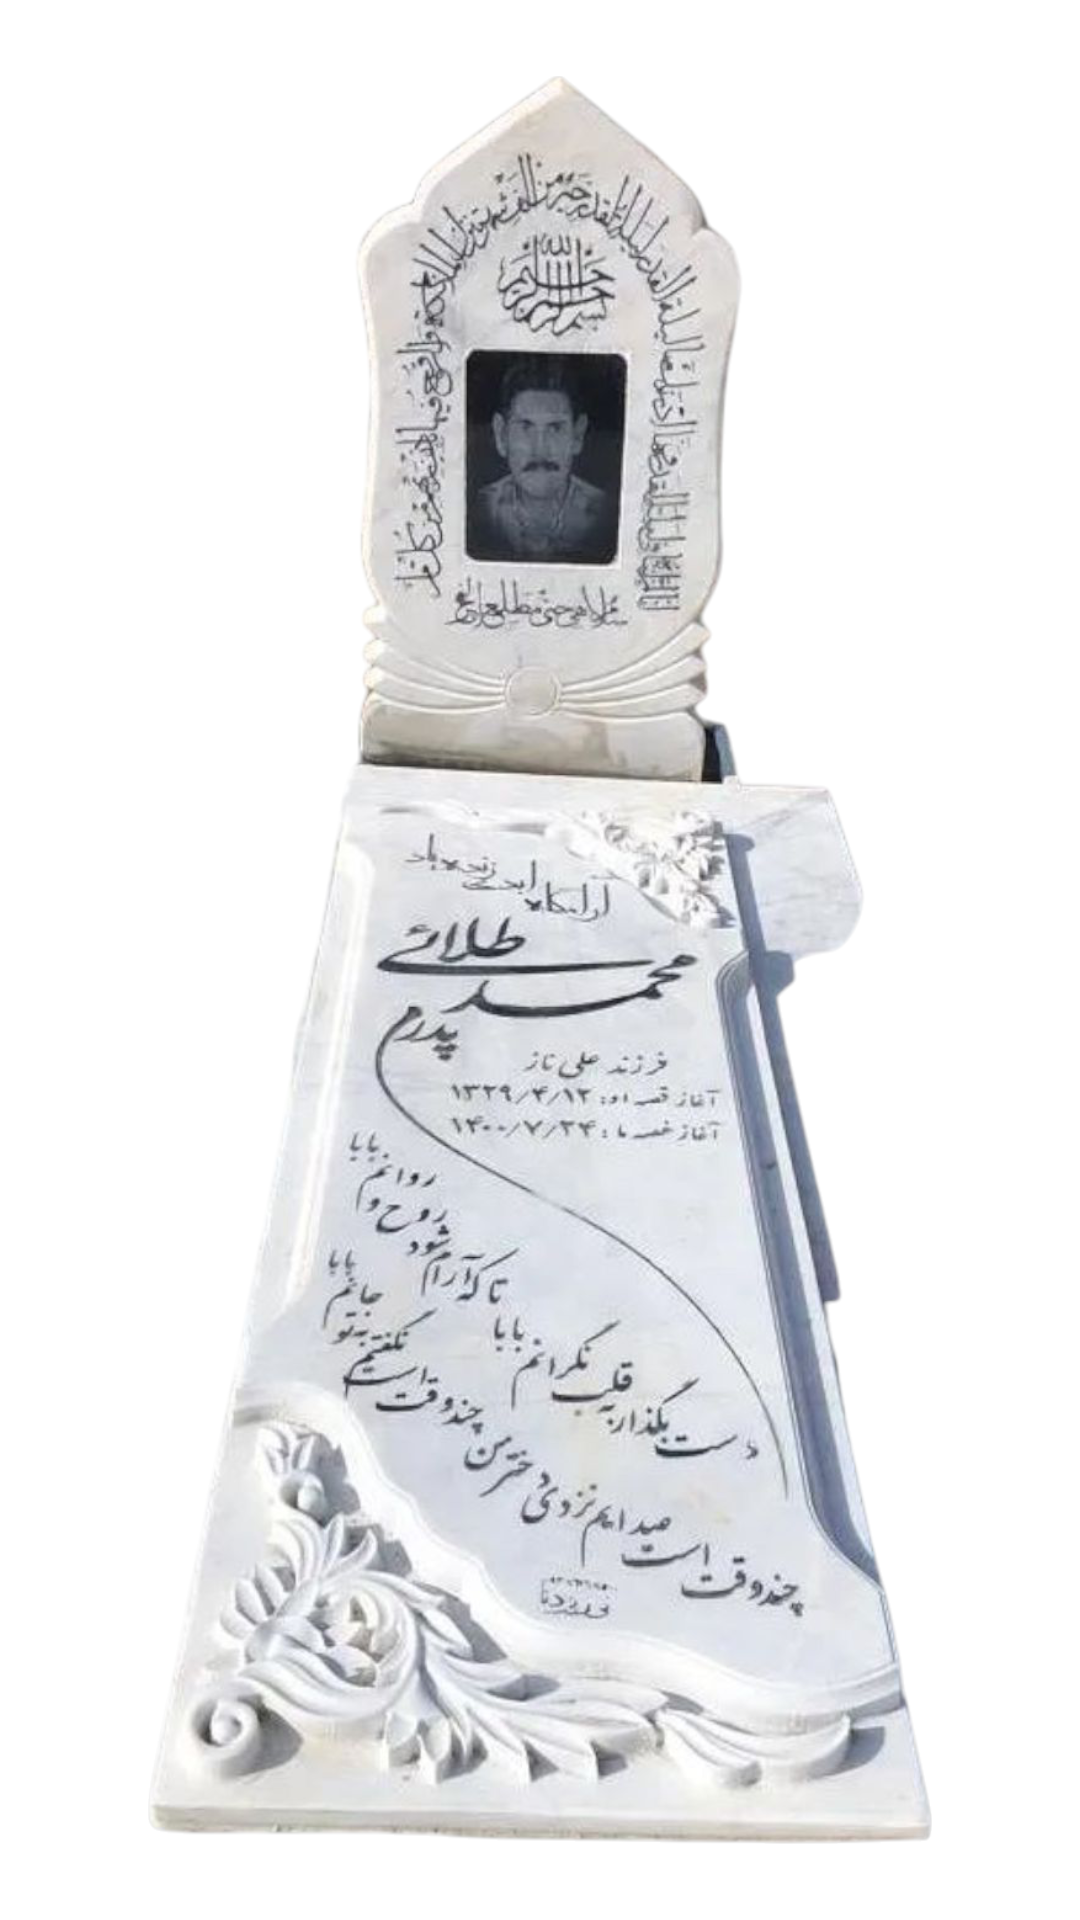 إنا أنزلناه في ليلة القدر وما أدراك ما ليلة القدر ليلة القدر خير من ألف شهر تنزل الملائكة والروح فيها بإذن ربهم من كل أمر
بسم الله الرحمن الرحیم
سلام هي حتى مطلع الفجر
آرامگاه ابدی زنده یاد
محمد طلائی
پدرم
فرزند علی ناز
آغاز قصه او: ۱۳۲۹/۴/۱۲
آغاز غصه ما: ۱۴۰۰/۷/۲۴
دست بگذار به قلب نگرانم بابا
تا که آرام شود روح و روانم بابا
چند وقت است صید ایم نزدی دختر من
چند وقت است نگفتیم به تو جانم بابا